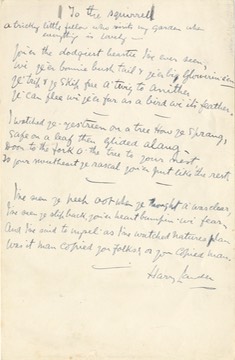 To the squirrell
a tricky little fellow who visits my garden when
everything is lovely
Ye're the dodgeust beastie I've ever seen,
Wi' ye'er bonnie bush tail & ye'er big glowerin een
Ye trip & ye skip frae a twig to anither
Ye can flee wi' ye'er fur as a bird wi' its feather.
I watched ye yestreen on a tree How ye sprang,
Safe on a leaf then glided alang
Doon to the fork o' the tree to your nest
To your sweetheart ye rascal you're just like the rest
I've seen ye peep oot when ye thought a' was clear,
I've seen ye slip back, your heart bumpin wi' fear,
And I've said to mysel' as I've watched natures plan
Was it man copied you folks or you copied man.
Harry Lauder